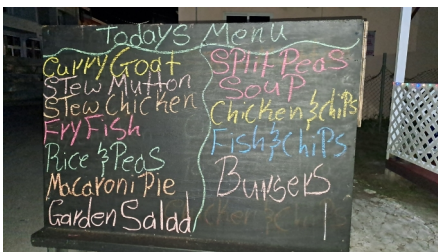 Todays Menu
Curry Goat
Stew Mutton
Stew Chicken
Fry Fish
Rice & Peas
Macaroni Pie
Garden Salad
Split Peas
Soup
Chicken & chips
Fish & Chips
Burgers